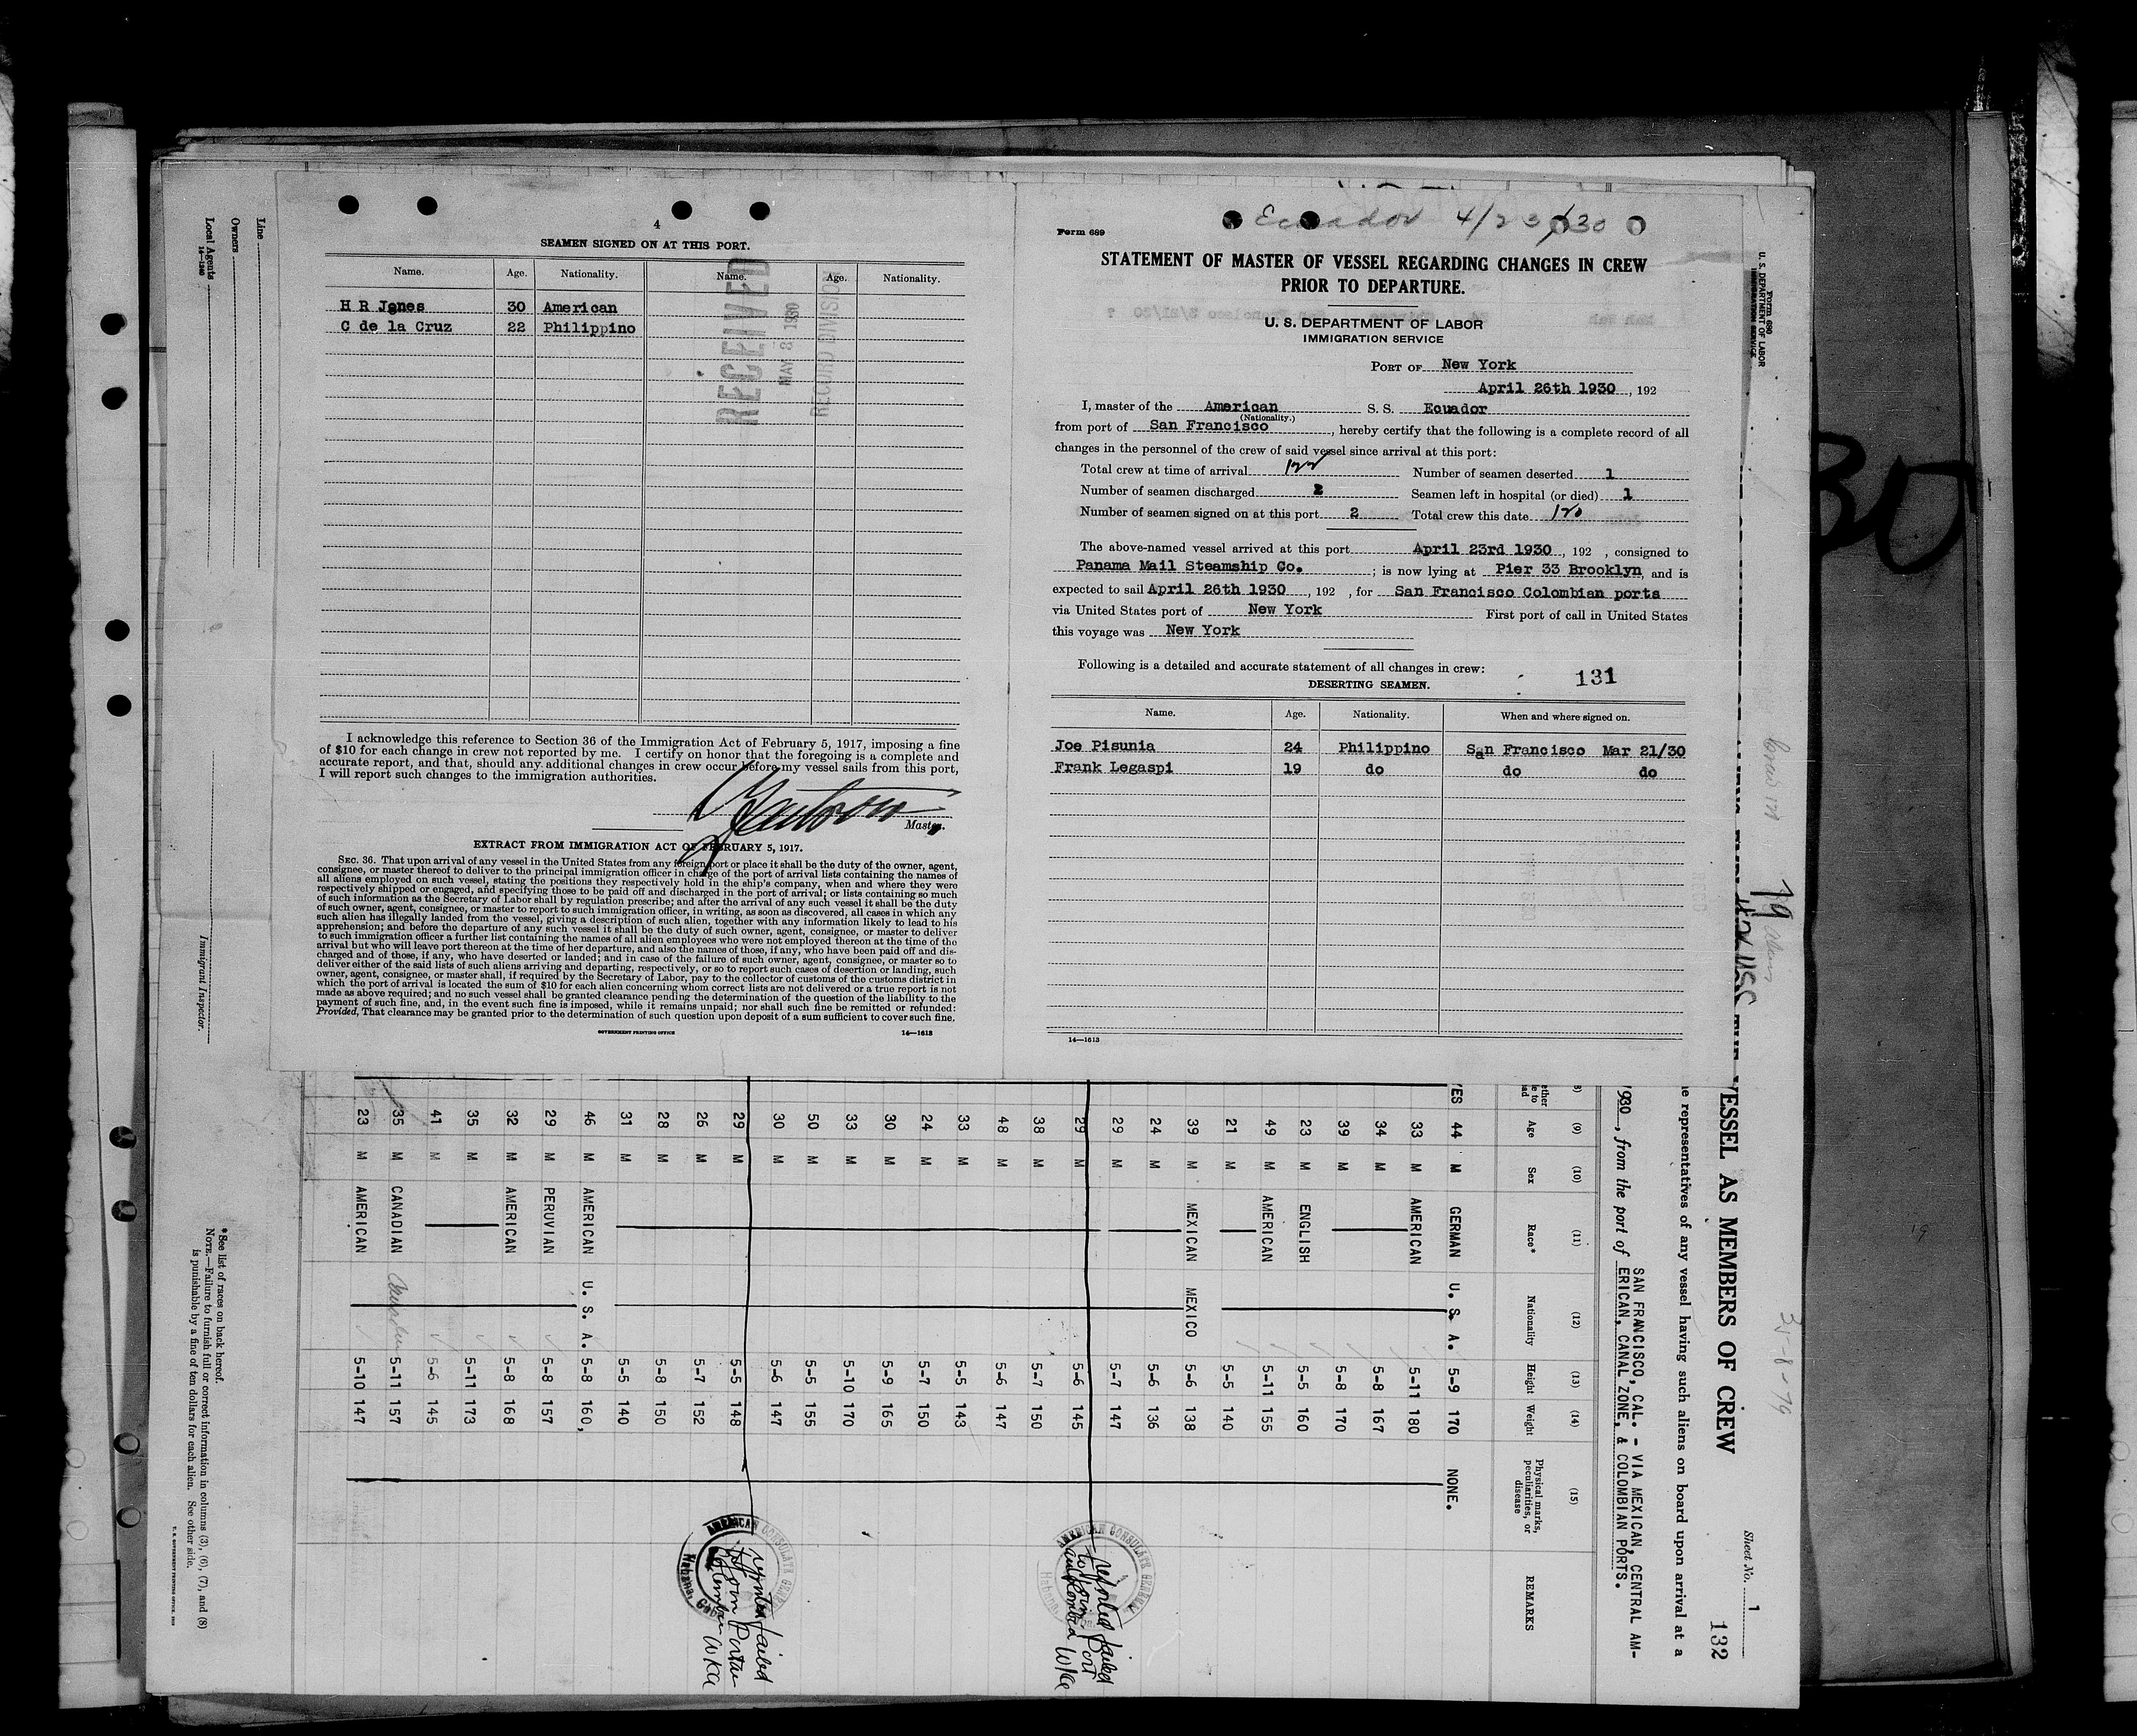 4
SEAMEN SIGNED ON AT THIS PORT.
Name. Age. Nationality. Name. Age. Nationality.
H R Jones 30 American
C de la Cruz 22 Philippino
RECEIVED
MAY 8 1930
RECORD DIVISION
I acknowledge this reference to Section 36 of the Immigration Act of February 5, 1917, imposing a fine
of $10 for each change in crew not reported by me. I certify on honor that the foregoing is a complete and
accurate report, and that, should any additional changes in crew occur before my vessel sails from this port,
I will report such changes to the immigration authorities.
Master.
EXTRACT FROM IMMIGRATION ACT OF FEBRUARY 5, 1917.
SEC. 36. That upon arrival of any vessel in the United States from any foreign port or place it shall be the duty of the owner, agent,
consignee, or master thereof to deliver to the principal immigration officer in charge of the port of arrival lists containing the names of
all aliens employed on such vessel, stating the positions they respectively hold in the ship's company, when and where they were
respectively shipped or engaged, and specifying those to be paid off and discharged in the port of arrival; or lists containing so much
of such information as the Secretary of Labor shall by regulation prescribe; and after the arrival of any such vessel it shall be the duty
of such owner, agent, consignee, or master to report to such immigration officer, in writing, as soon as discovered, all cases in which any
such alien has illegally landed from the vessel, giving a description of such alien, together with any information likely to lead to his
apprehension; and before the departure of any such vessel it shall be the duty of such owner, agent, consignee, or master to deliver
to such immigration officer a further list containing the names of all alien employees who were not employed thereon at the time of the
arrival but who will leave port thereon at the time of her departure, and also the names of those, if any, who have been paid off and dis-
charged and of those, if any, who have deserted or landed; and in case of the failure of such owner, agent, consignee, or master so to
deliver either of the said lists of such aliens arriving and departing, respectively, or so to report such cases of desertion or landing, such
owner, agent, consignee, or master shall, if required by the Secretary of Labor, pay to the collector of customs of the customs district in
which the port of arrival is located the sum of $10 for each alien concerning whom correct lists are not delivered or a true report is not
made as above required; and no such vessel shall be granted clearance pending the determination of the question of the liability to the
payment of such fine, and, in the event such fine is imposed, while it remains unpaid; nor shall such fine be remitted or refunded:
Provided, That clearance may be granted prior to the determination of such question upon deposit of a sum sufficient to cover such fine.
GOVERNMENT PRINTING OFFICE 14—1613
Ecuador 4/23/30
Form 689
STATEMENT OF MASTER OF VESSEL REGARDING CHANGES IN CREW
PRIOR TO DEPARTURE.
U. S. DEPARTMENT OF LABOR
IMMIGRATION SERVICE
PORT OF New York
April 26th 1930, 192
I, master of the American S. S. Ecuador
(Nationality.)
from port of San Francisco, hereby certify that the following is a complete record of all
changes in the personnel of the crew of said vessel since arrival at this port:
Total crew at time of arrival 122 Number of seamen deserted 1
Number of seamen discharged 2 Seamen left in hospital (or died) 1
Number of seamen signed on at this port 2 Total crew this date 120
The above-named vessel arrived at this port April 23rd 1930, 192 , consigned to
Panama Mail Steamship Co. ; is now lying at Pier 33 Brooklyn, and is
expected to sail April 26th 1930, 192 , for San Francisco Colombian ports
via United States port of New York First port of call in United States
this voyage was New York
Following is a detailed and accurate statement of all changes in crew:
131
DESERTING SEAMEN.
Name. Age. Nationality. When and where signed on.
Joe Pisunia 24 Philippino San Francisco Mar 21/30
Frank Legaspi 19 do do do
14—1613
Line
Owners
Local Agents
14—1240
Immigrant Inspector.
*See list of races on back hereof.
NOTE.—Failure to furnish full or correct information in columns (3), (6), (7), and (8)
is punishable by a fine of ten dollars for each alien. See other side.
Form 680
U. S. DEPARTMENT OF LABOR
IMMIGRATION SERVICE
Sheet No. 1
132
VESSEL AS MEMBERS OF CREW
representatives of any vessel having such aliens on board upon arrival at a
SAN FRANCISCO, CAL. – VIA MEXICAN, CENTRAL AM-
930, from the port of ERICAN, CANAL ZONE, & COLOMBIAN PORTS.
(9) (10) (11) (12) (13) (14) (15)
Age Sex Race* Nationality Height Weight Physical marks, peculiarities, or disease REMARKS
YES 44 M GERMAN U. S. A. 5-9 170 NONE.
33 M AMERICAN 5-11 180
34 M 5-8 167
39 M 5-8 170
23 M ENGLISH 5-5 160
49 M AMERICAN 5-11 155
21 M 5-5 140
39 M MEXICAN MEXICO 5-6 138
24 M 5-6 136
29 M 5-7 147
29 M 5-6 145 reported failed to join Port
38 M 5-7 150
48 M 5-6 147
33 M 5-5 143
24 M 5-7 150
30 M 5-9 165
33 M 5-10 170
50 M 5-5 155
30 M 5-6 147
29 M 5-5 148 reported failed
26 M 5-7 152
28 M 5-8 150
31 M 5-5 140
46 M AMERICAN U. S. A. 5-8 160,
29 M PERUVIAN 5-8 157
32 M AMERICAN 5-8 168
35 M 5-11 173
41 M 5-6 145
35 M CANADIAN 5-11 157
23 M AMERICAN 5-10 147
AMERICAN CONSULATE GENERAL
Habana
AMERICAN CONSULATE GENERAL
Habana, Cuba
35-8-79
30